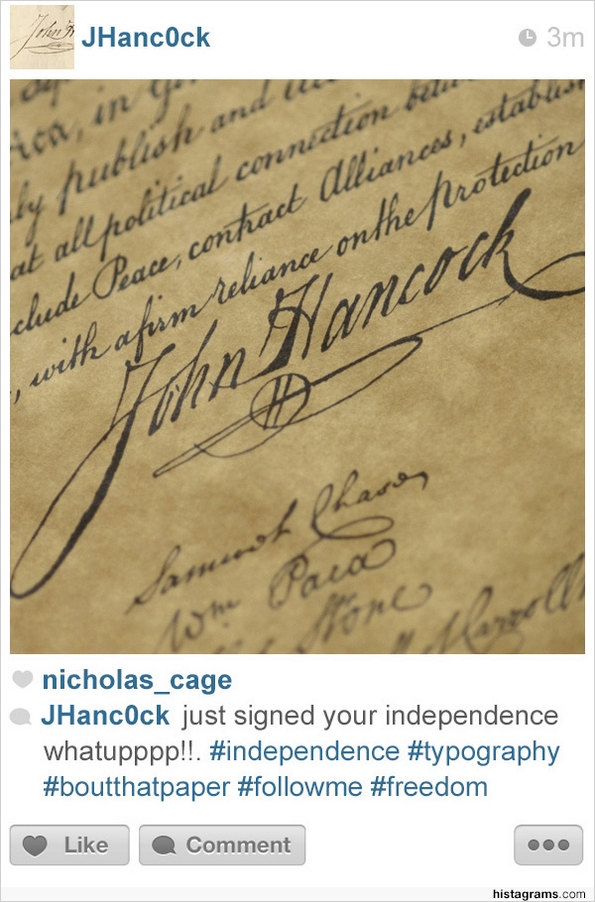 John H
JHanc0ck
3m
by publish and
at all political connection
clude Peace, contract Alliances, establish
, with a firm reliance on the protection
John Hancock
Samuel Chase
Wm Paca
Stone
JHanc0ck just signed your independence
whatupppp!!. #independence #typography
#boutthatpaper #followme #freedom
nicholas_cage
Like
Comment
histagrams.com